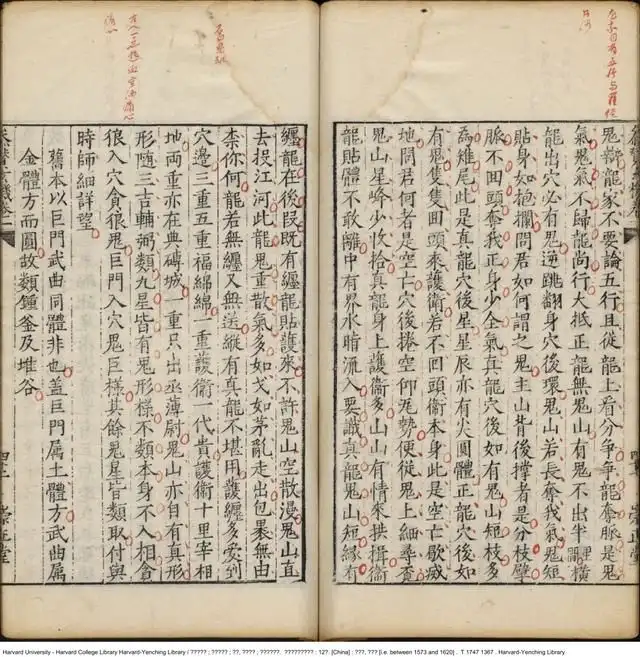 鬼辯龍家不要論五行且從龍上看分爭爭龍奪脈是鬼
氣鬼氣不歸龍尚行大抵正龍無鬼山有鬼不出半里橫
龍出穴必有鬼逆跳翻身穴後環鬼山若長奪我氣鬼短
貼身如抱欄問君如何謂之鬼主山背後撐者是分枝劈
脈不回頭奪我正身少全氣真龍穴後如有鬼山短枝多
為雉尾此是真龍穴後星星辰亦有尖圓體正龍穴後如
有鬼隻隻回頭來護衛若不回頭衛本身此是空亡歇滅
地問君何者是空亡穴後捲空仰瓦勢便從鬼上細尋看
鬼山星峰少收拾真龍身上護衛多山山有情來拱揖衛
龍貼體不敢離中有界水暗流入要識真龍鬼山短緣有
纏龍在後段既有纏龍貼護來不許鬼山空散漫鬼山直
去投江河此龍鬼重散氣多如戈如茅亂走出包裹無由
柰你何龍若無纏又無送縱有真龍不堪用護纏多愛到
穴邊三重五重福綿綿一重護衛一代貴護衛十里宰相
地兩重亦在典磚城一重只出丞薄尉鬼山亦自有真形
形隨三吉輔弼類九星皆有鬼形樣不類本身不入相貪
狼入穴貪狼鬼巨門入穴鬼巨樣其餘鬼星皆類取付與
時師細詳望
舊本以巨門武曲同體非也蓋巨門属土體方武曲属
金體方而圓故類鍾釜及堆谷
崇正堂
崇正堂
Harvard University - Harvard College Library Harvard-Yenching Library / ????? ; ????? ; ??, ???? ; ??????. ????????? : 12?. [China] : ???, ??? [i.e. between 1573 and 1620] . T 1747 1367 . Harvard-Yenching Library